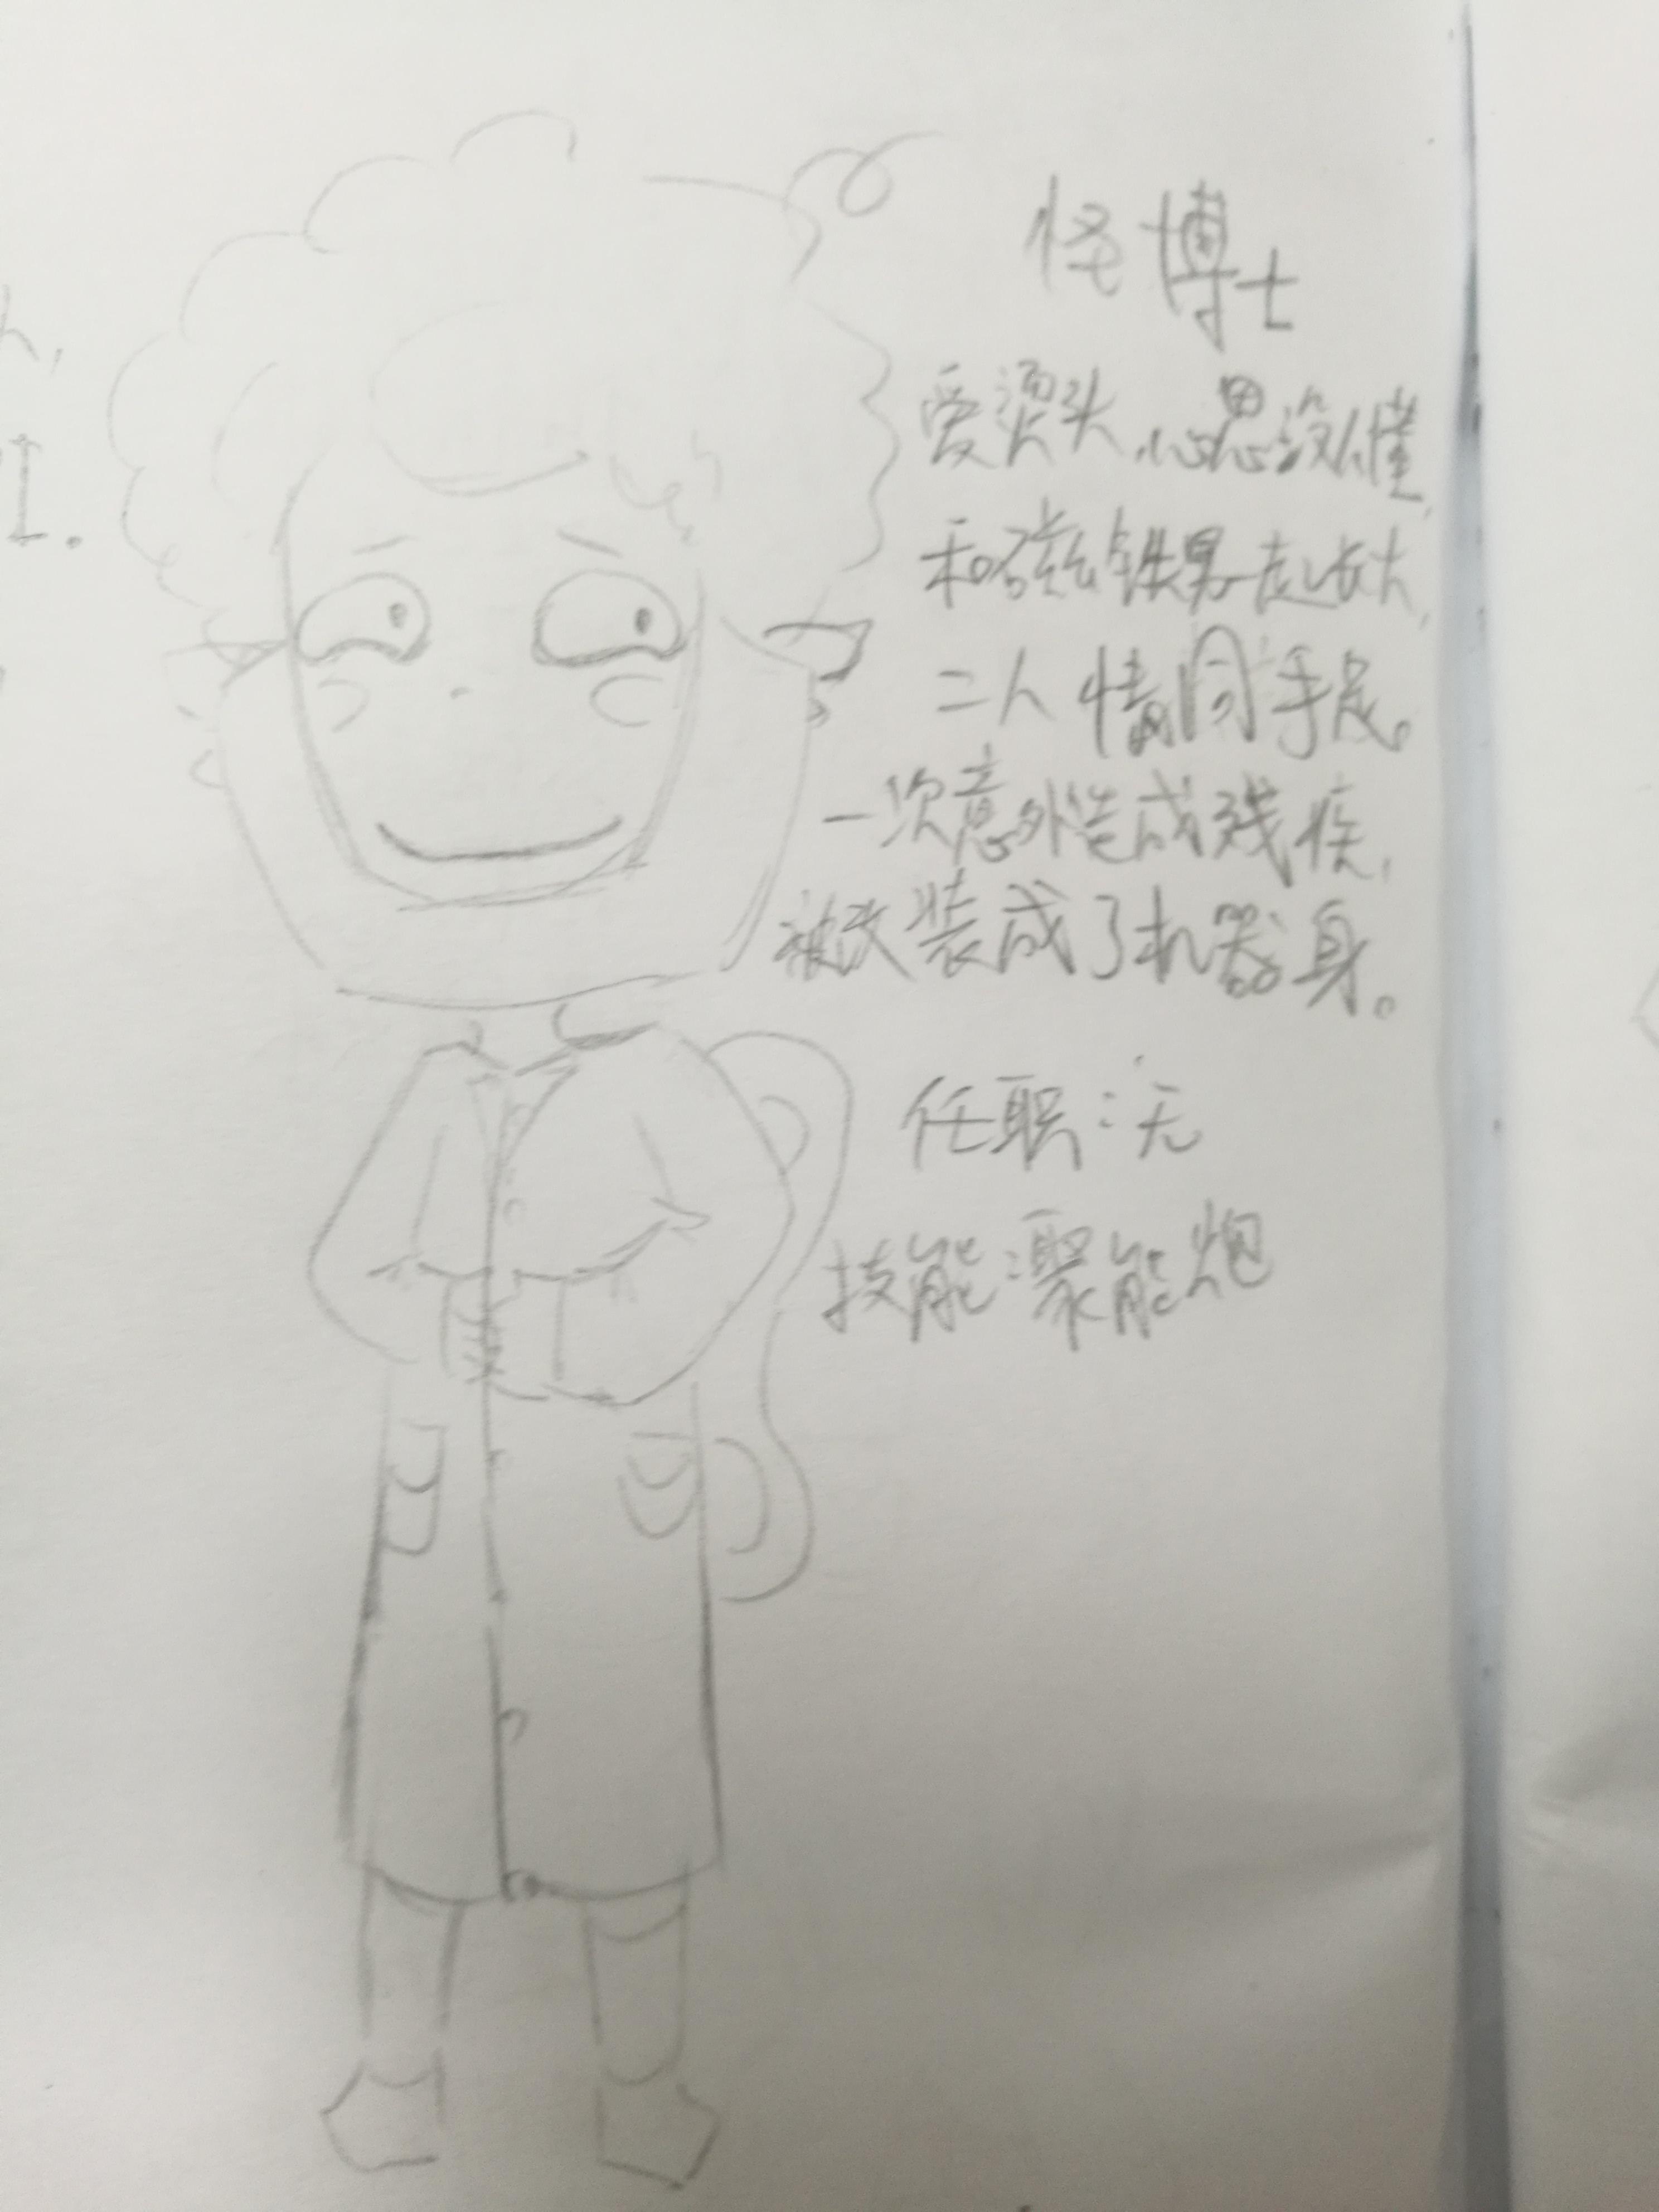 怪博士
爱烫头，心思没人懂，
和磁铁男一起长大，
二人情同手足。
一次意外造成残疾，
被改装成了机器身。
任职：无
技能：聚能炮